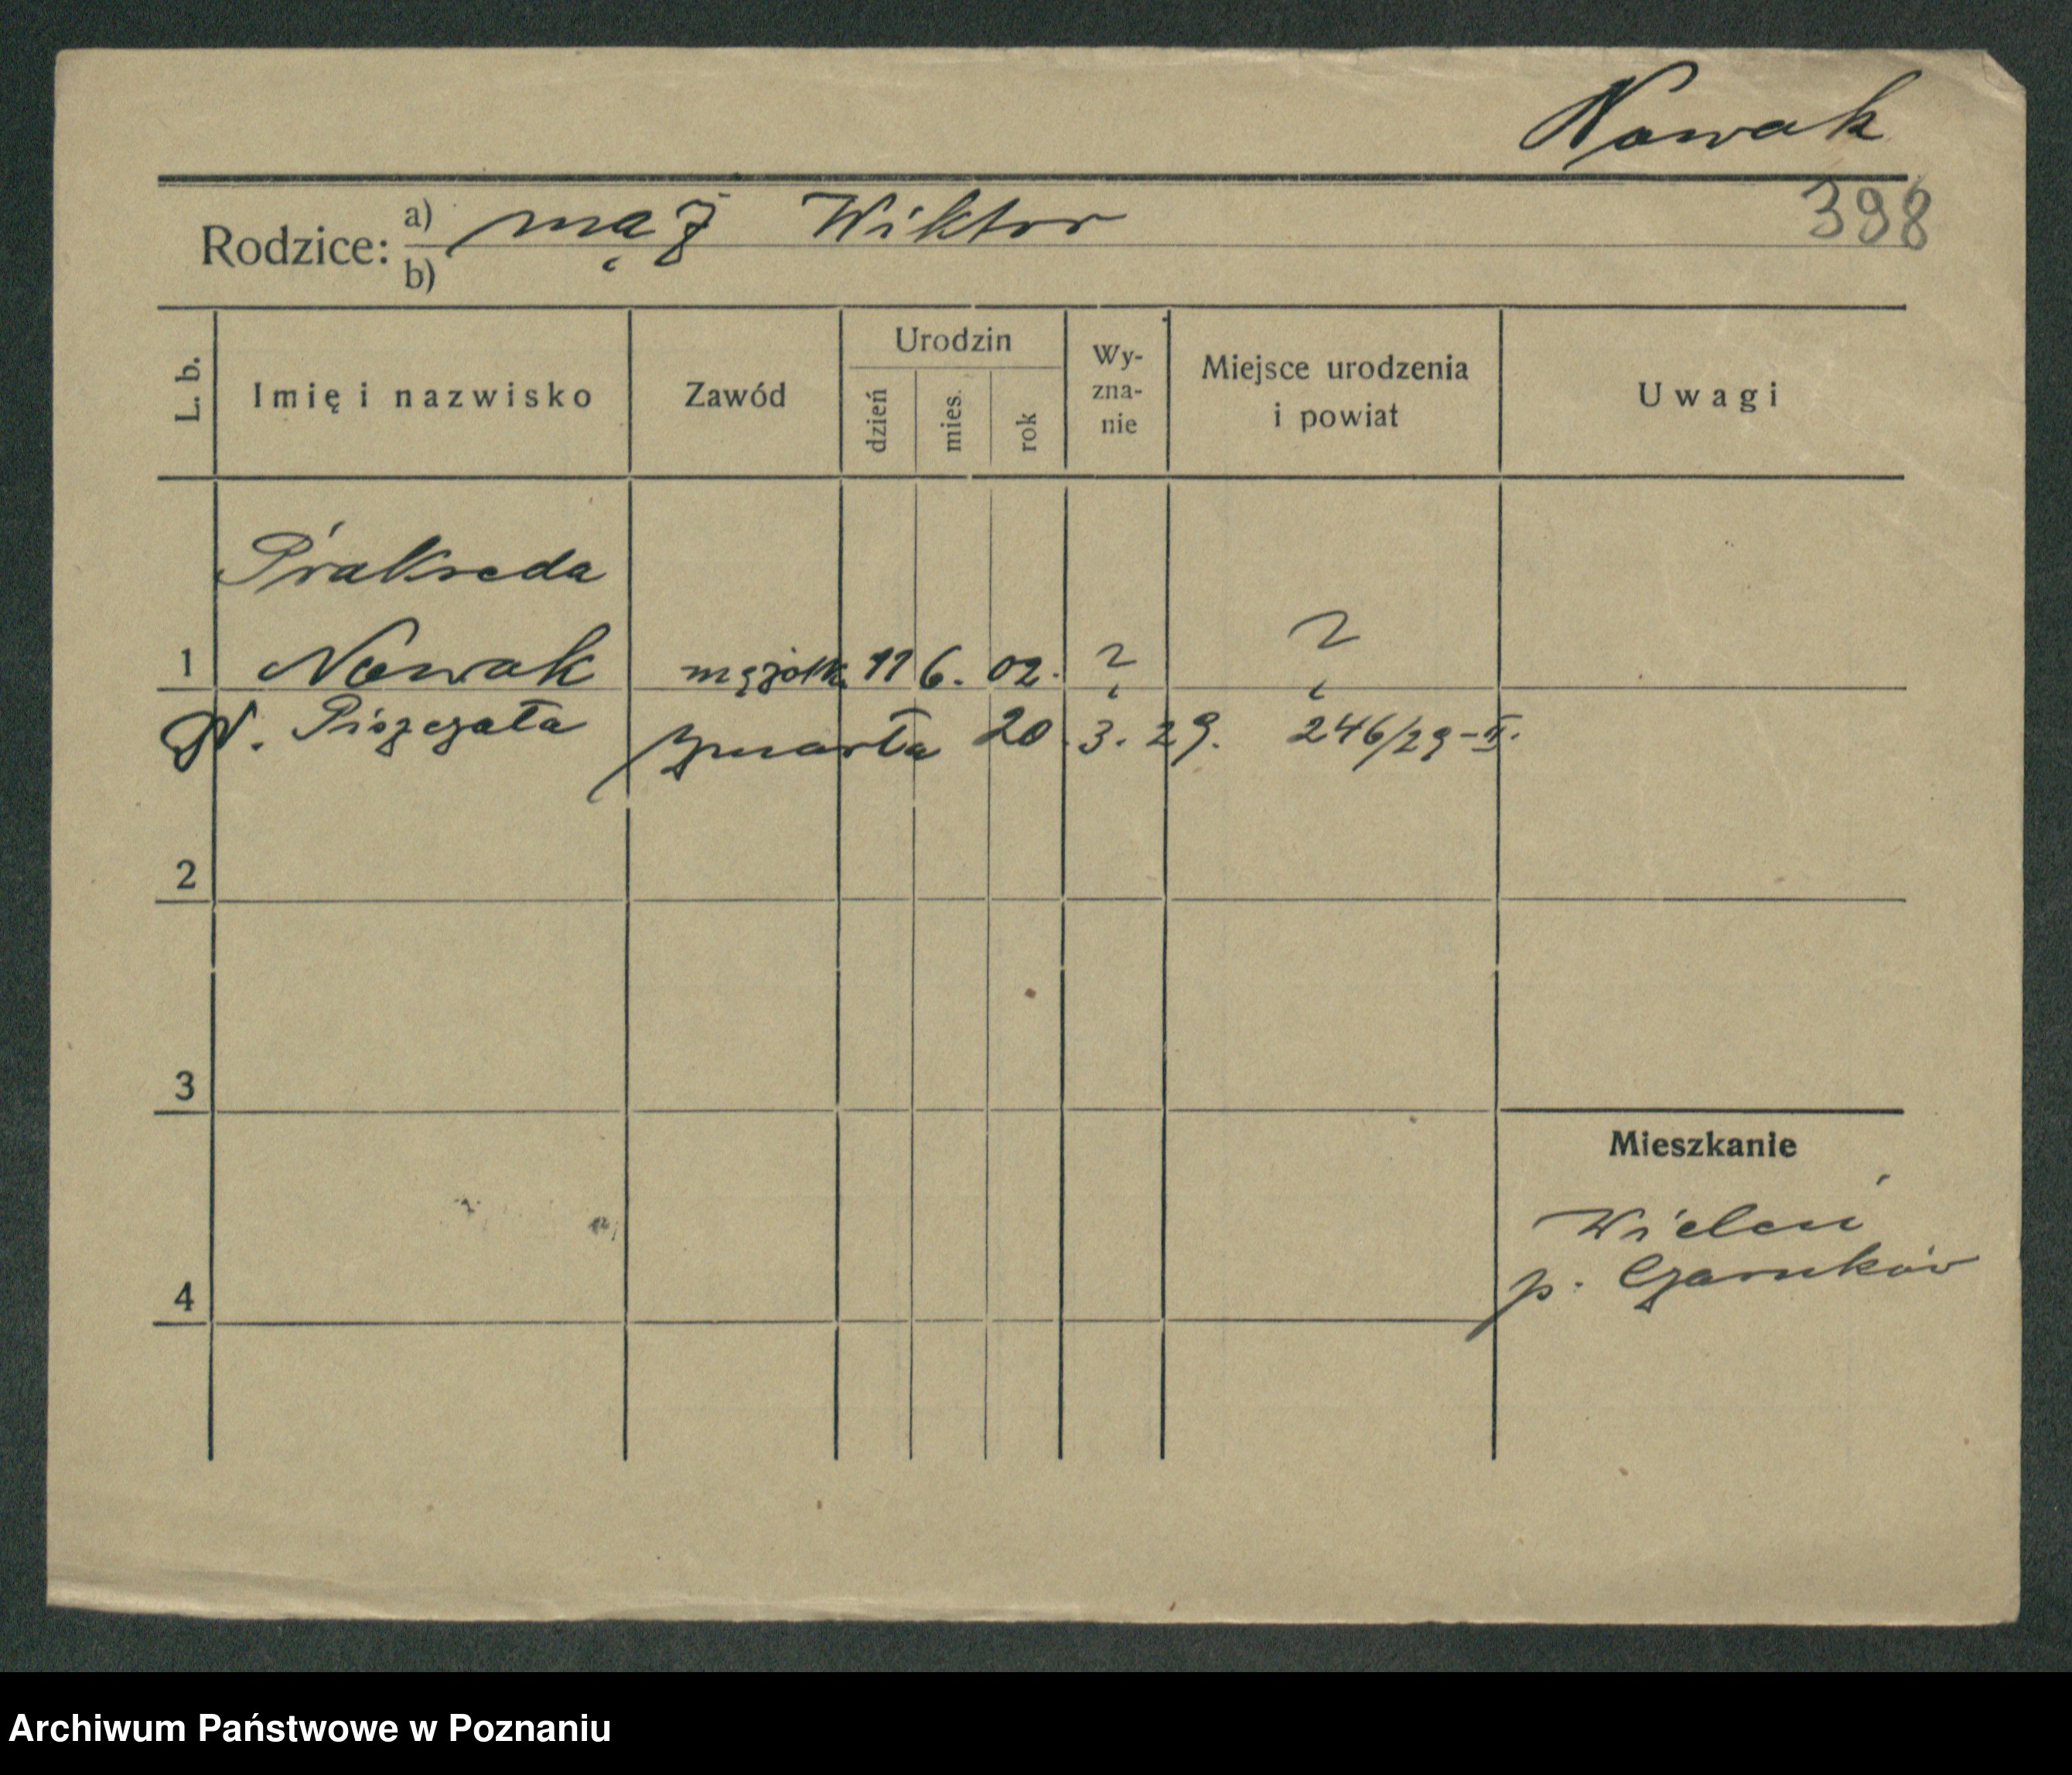 Nowak
398
Rodzice: a) mąż Wiktor
b)
L. b. Imię i nazwisko Zawód Urodzin dzień mies. rok Wy-zna-nie Miejsce urodzenia i powiat Uwagi
Prakseda
1 Nowak mężatk. 11 6. 02. ? ?
N. Piszczała zmarła 20.3.29. 246/29-II.
2
3
Mieszkanie
Wieleń
p. Czarnków
4
Archiwum Państwowe w Poznaniu